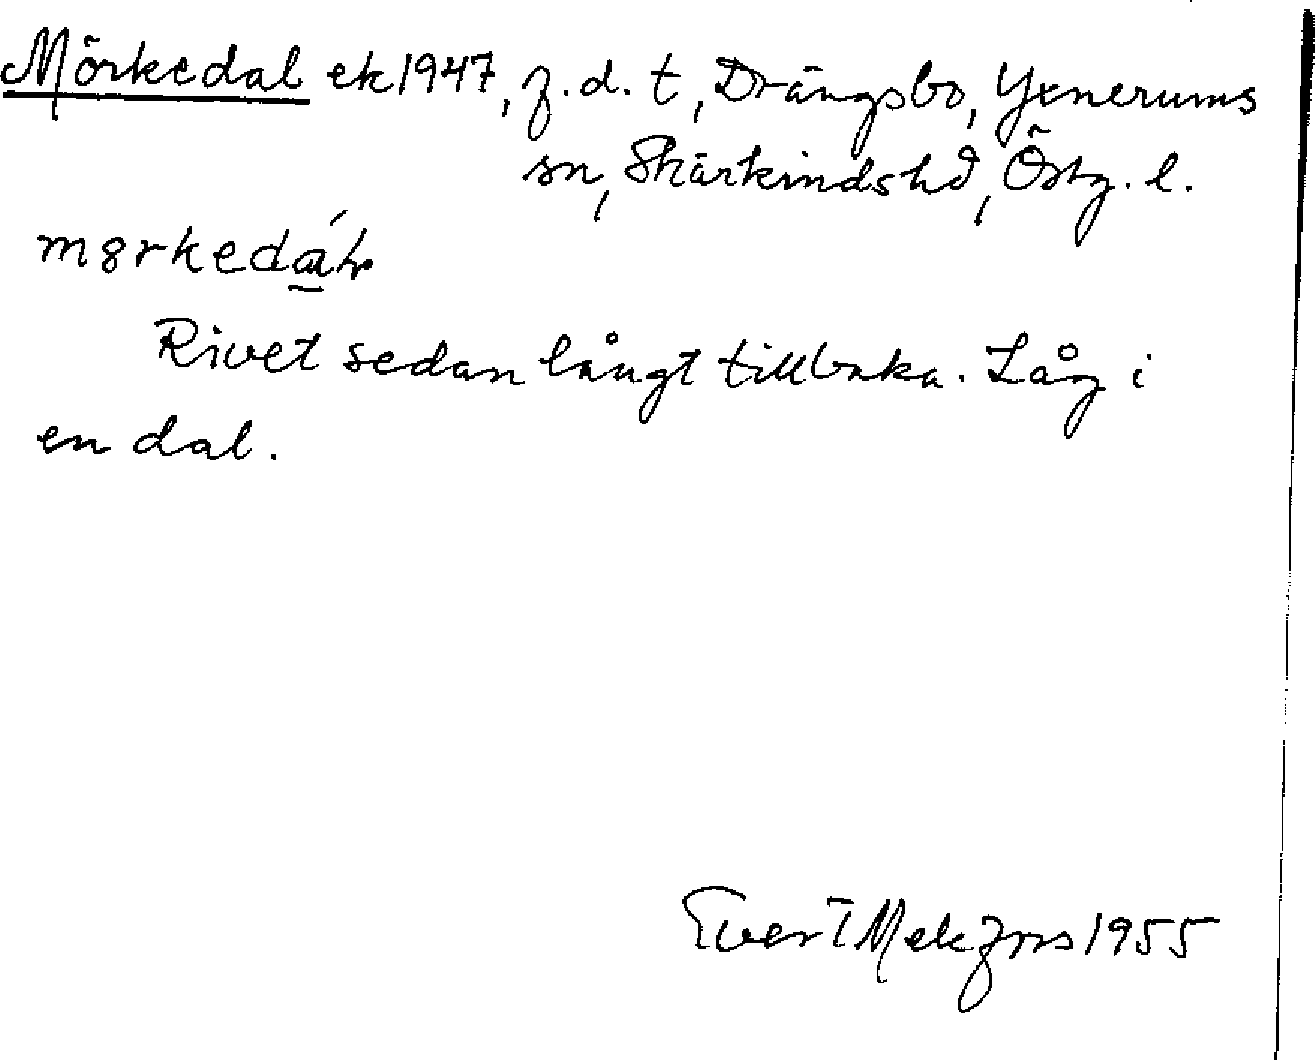 Mörkedal ek 1947, f.d. t, Drängsbo, Yxnerums
sn, Skärkinds hd, Östg. l.
Rivet sedan långt tillbaka. Låg i
en dal.
Evert 1955